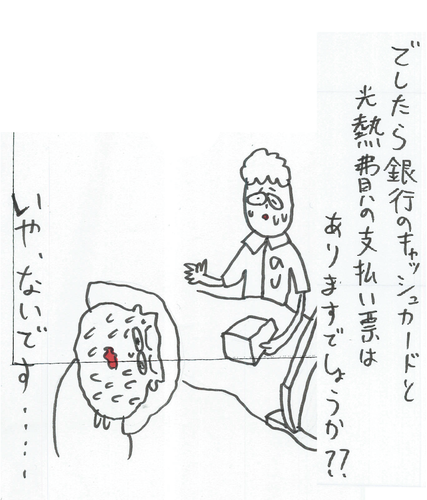 でしたら銀行のキャッシュカードと
光熱費の支払い票は
ありますでしょうか??
いや、ないです……